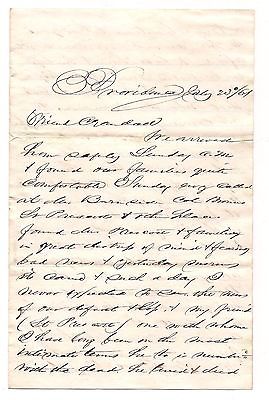 Providence July 23d/61
Friend Crandall
We arrived
home safely Sunday a.m.
& found our families quite
Comfortable Sunday eve called
at Mrs Burnside Col
Lt Prescotts & other places
found Mrs Prescott & families
in great distress of mind & fearing
bad news & yesterday morning
it came & such a day I
never expected to see the news
of our defeat & loss & my friend
(Lt Prescott) one with whom
I have long been on the most
intimate terms he is numbered
with the dead the bravest died